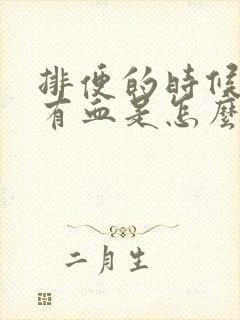 排便的時候
有血是怎麼
二月生